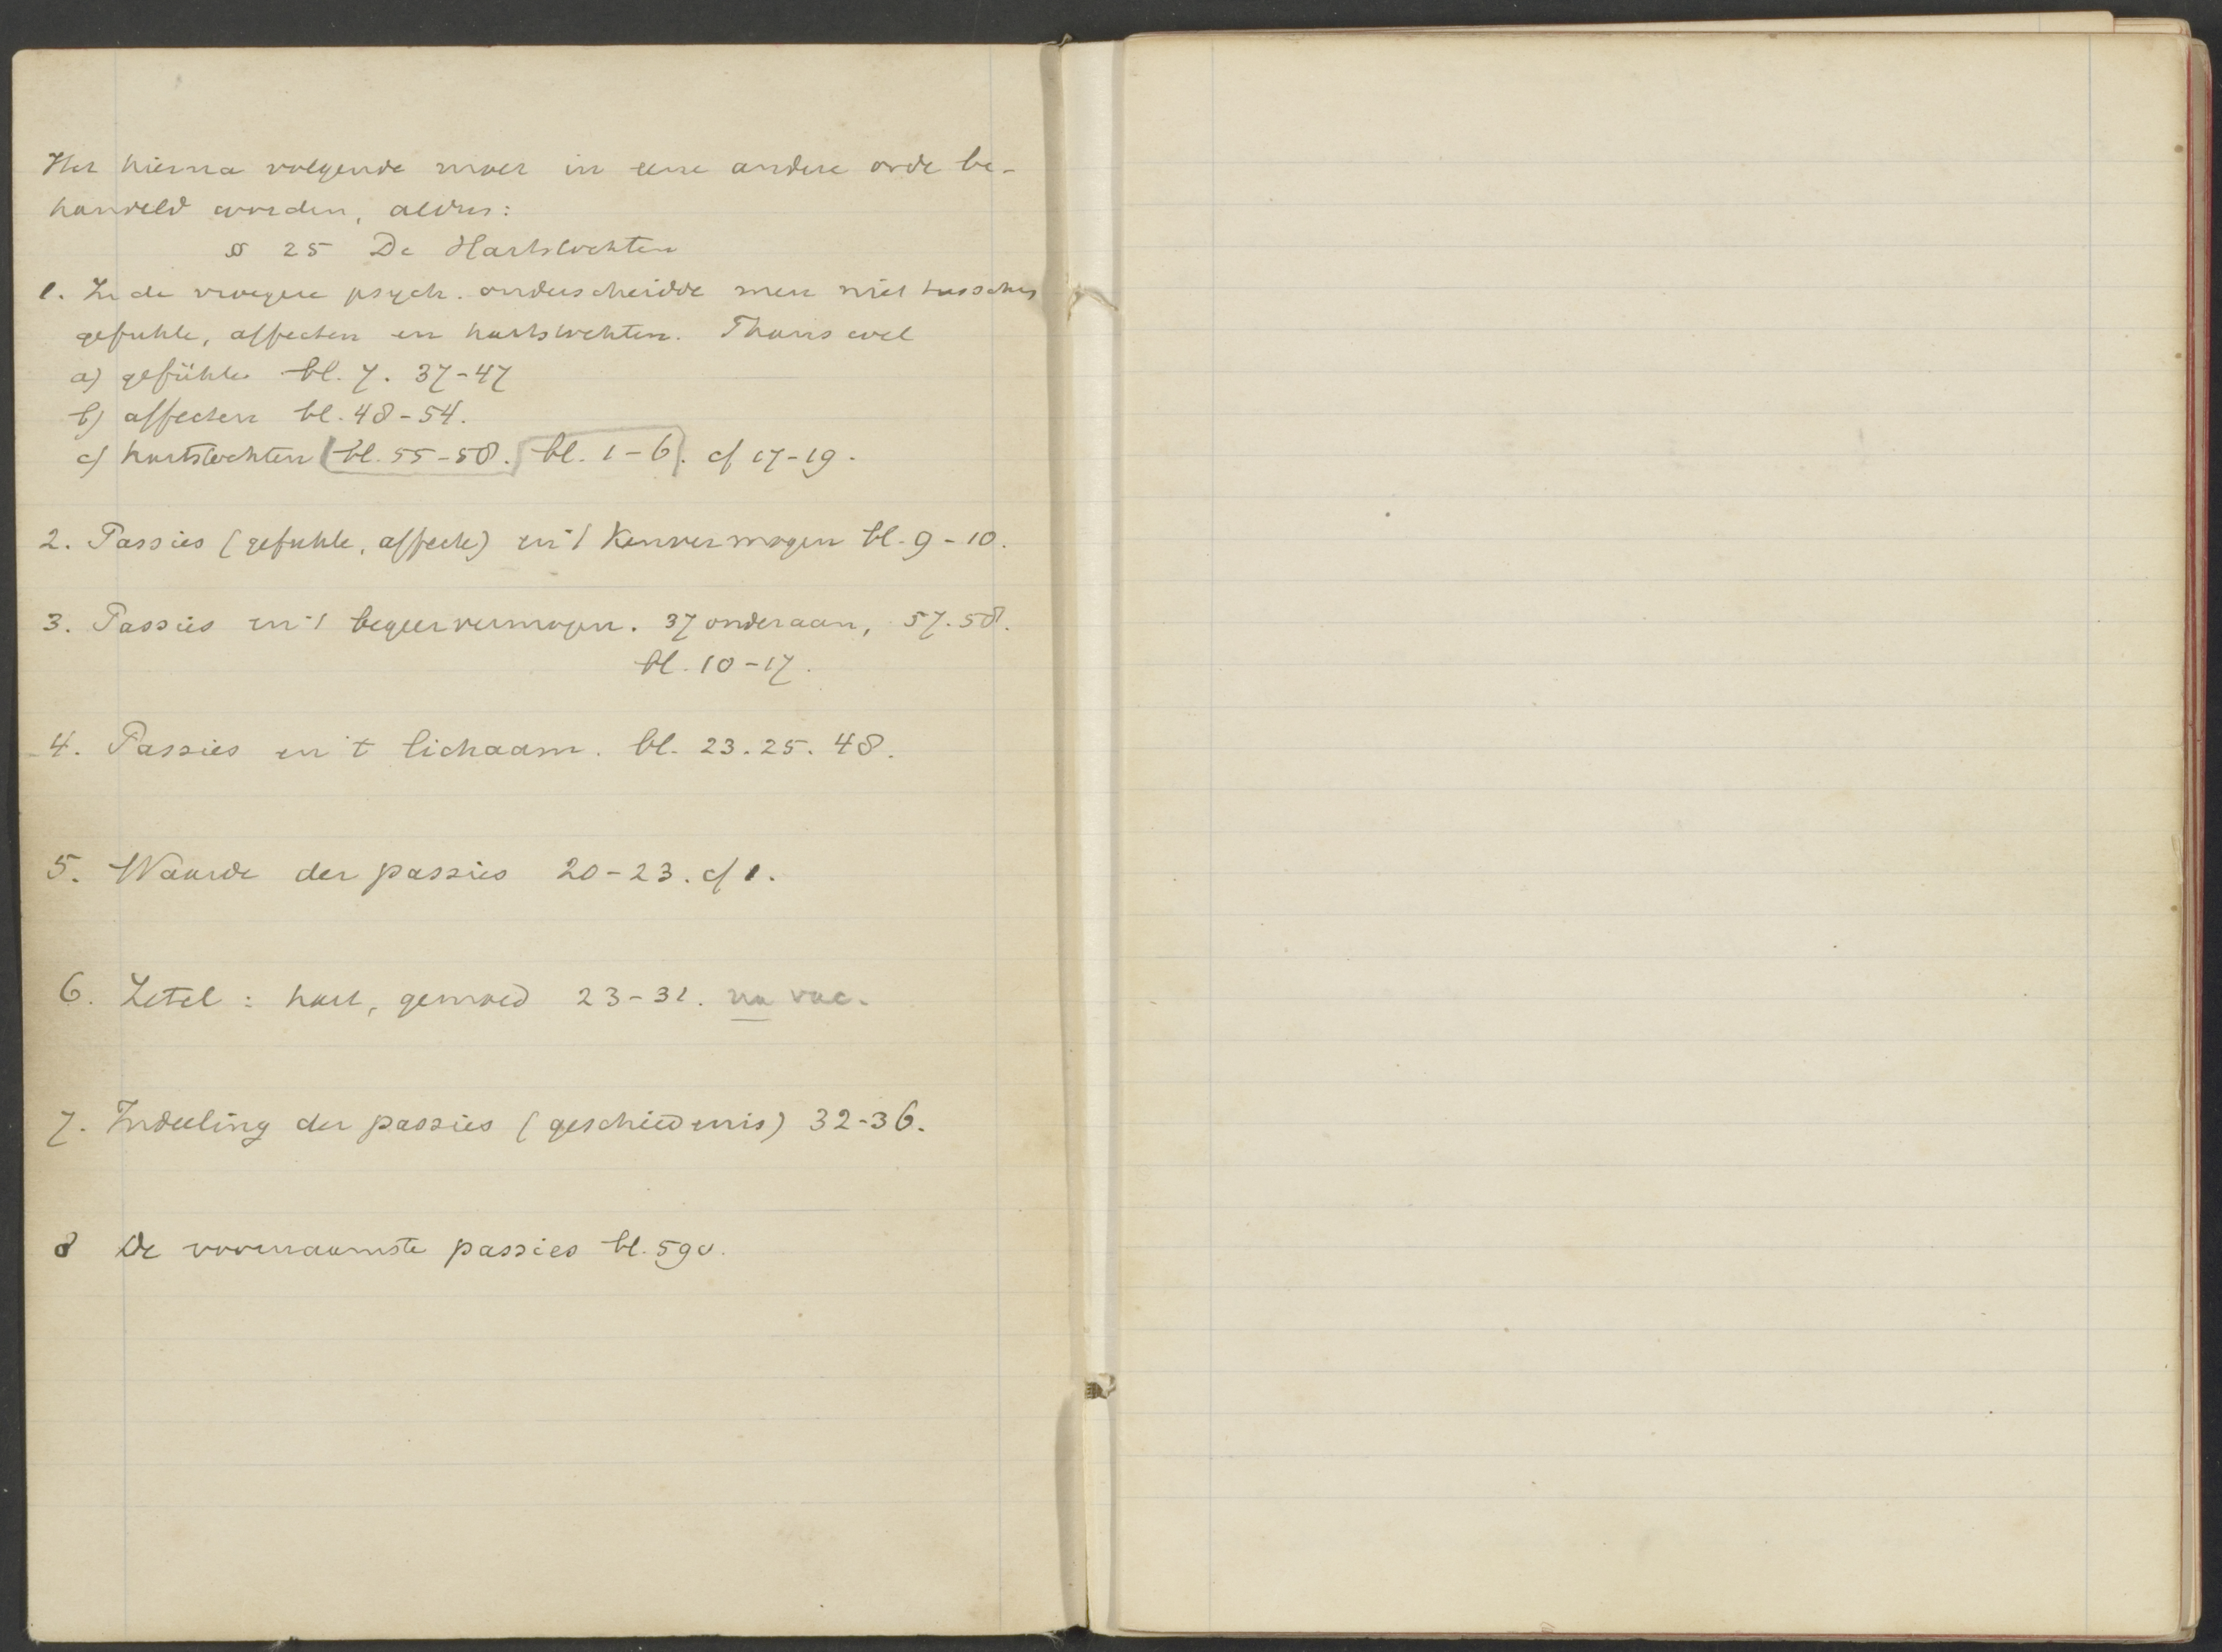 Het hierna volgende moet in eene andere orde be-
handeld worden, aldus:
§ 25 De Hartstochten
1. In de vroegere psych. onderscheidde men niet tusschen
gefuhle, affecten en hartstochten. Thans wel
a) gefühle bl. 7. 37-47
b) affecten bl. 48-54.
c) hartstochten (bl. 55-58. bl. 1-6). cf 17-19.
2. Passies (gefuhle, affecte) en 't Kenvermogen bl. 9-10.
3. Passies en 't begeervermogen. 37 onderaan, 57. 58.
bl. 10-17.
4. Passies en 't lichaam. bl. 23. 25. 48.
5. Waarde der passies 20-23. cf 1.
6. Zetel: hart, gemoed 23-31. na vac.
7. Indeeling der passies (geschiedenis) 32-36.
8 De voornaamste passies bl. 59v.